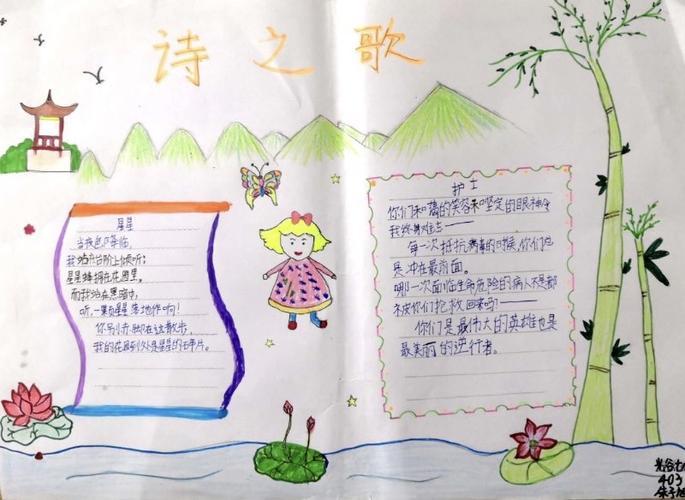 诗之歌
星星
当夜色降临,
我站在台阶上倾听;
星星蜂拥在花园里,
而我站在黑暗中。
听,一颗星星落地作响!
你别赤脚在这散步,
我的花园到处是星星的碎片。
护士
你们和蔼的笑容和坚定的眼神令
我终身难忘——
每一次抵抗病毒的时候,你们也
是冲在最前面。
哪一次面临生命危险的病人不是都
被你们抢救回来吗?
你们是最伟大的英雄也是
最美丽的逆行者。
光谷
403